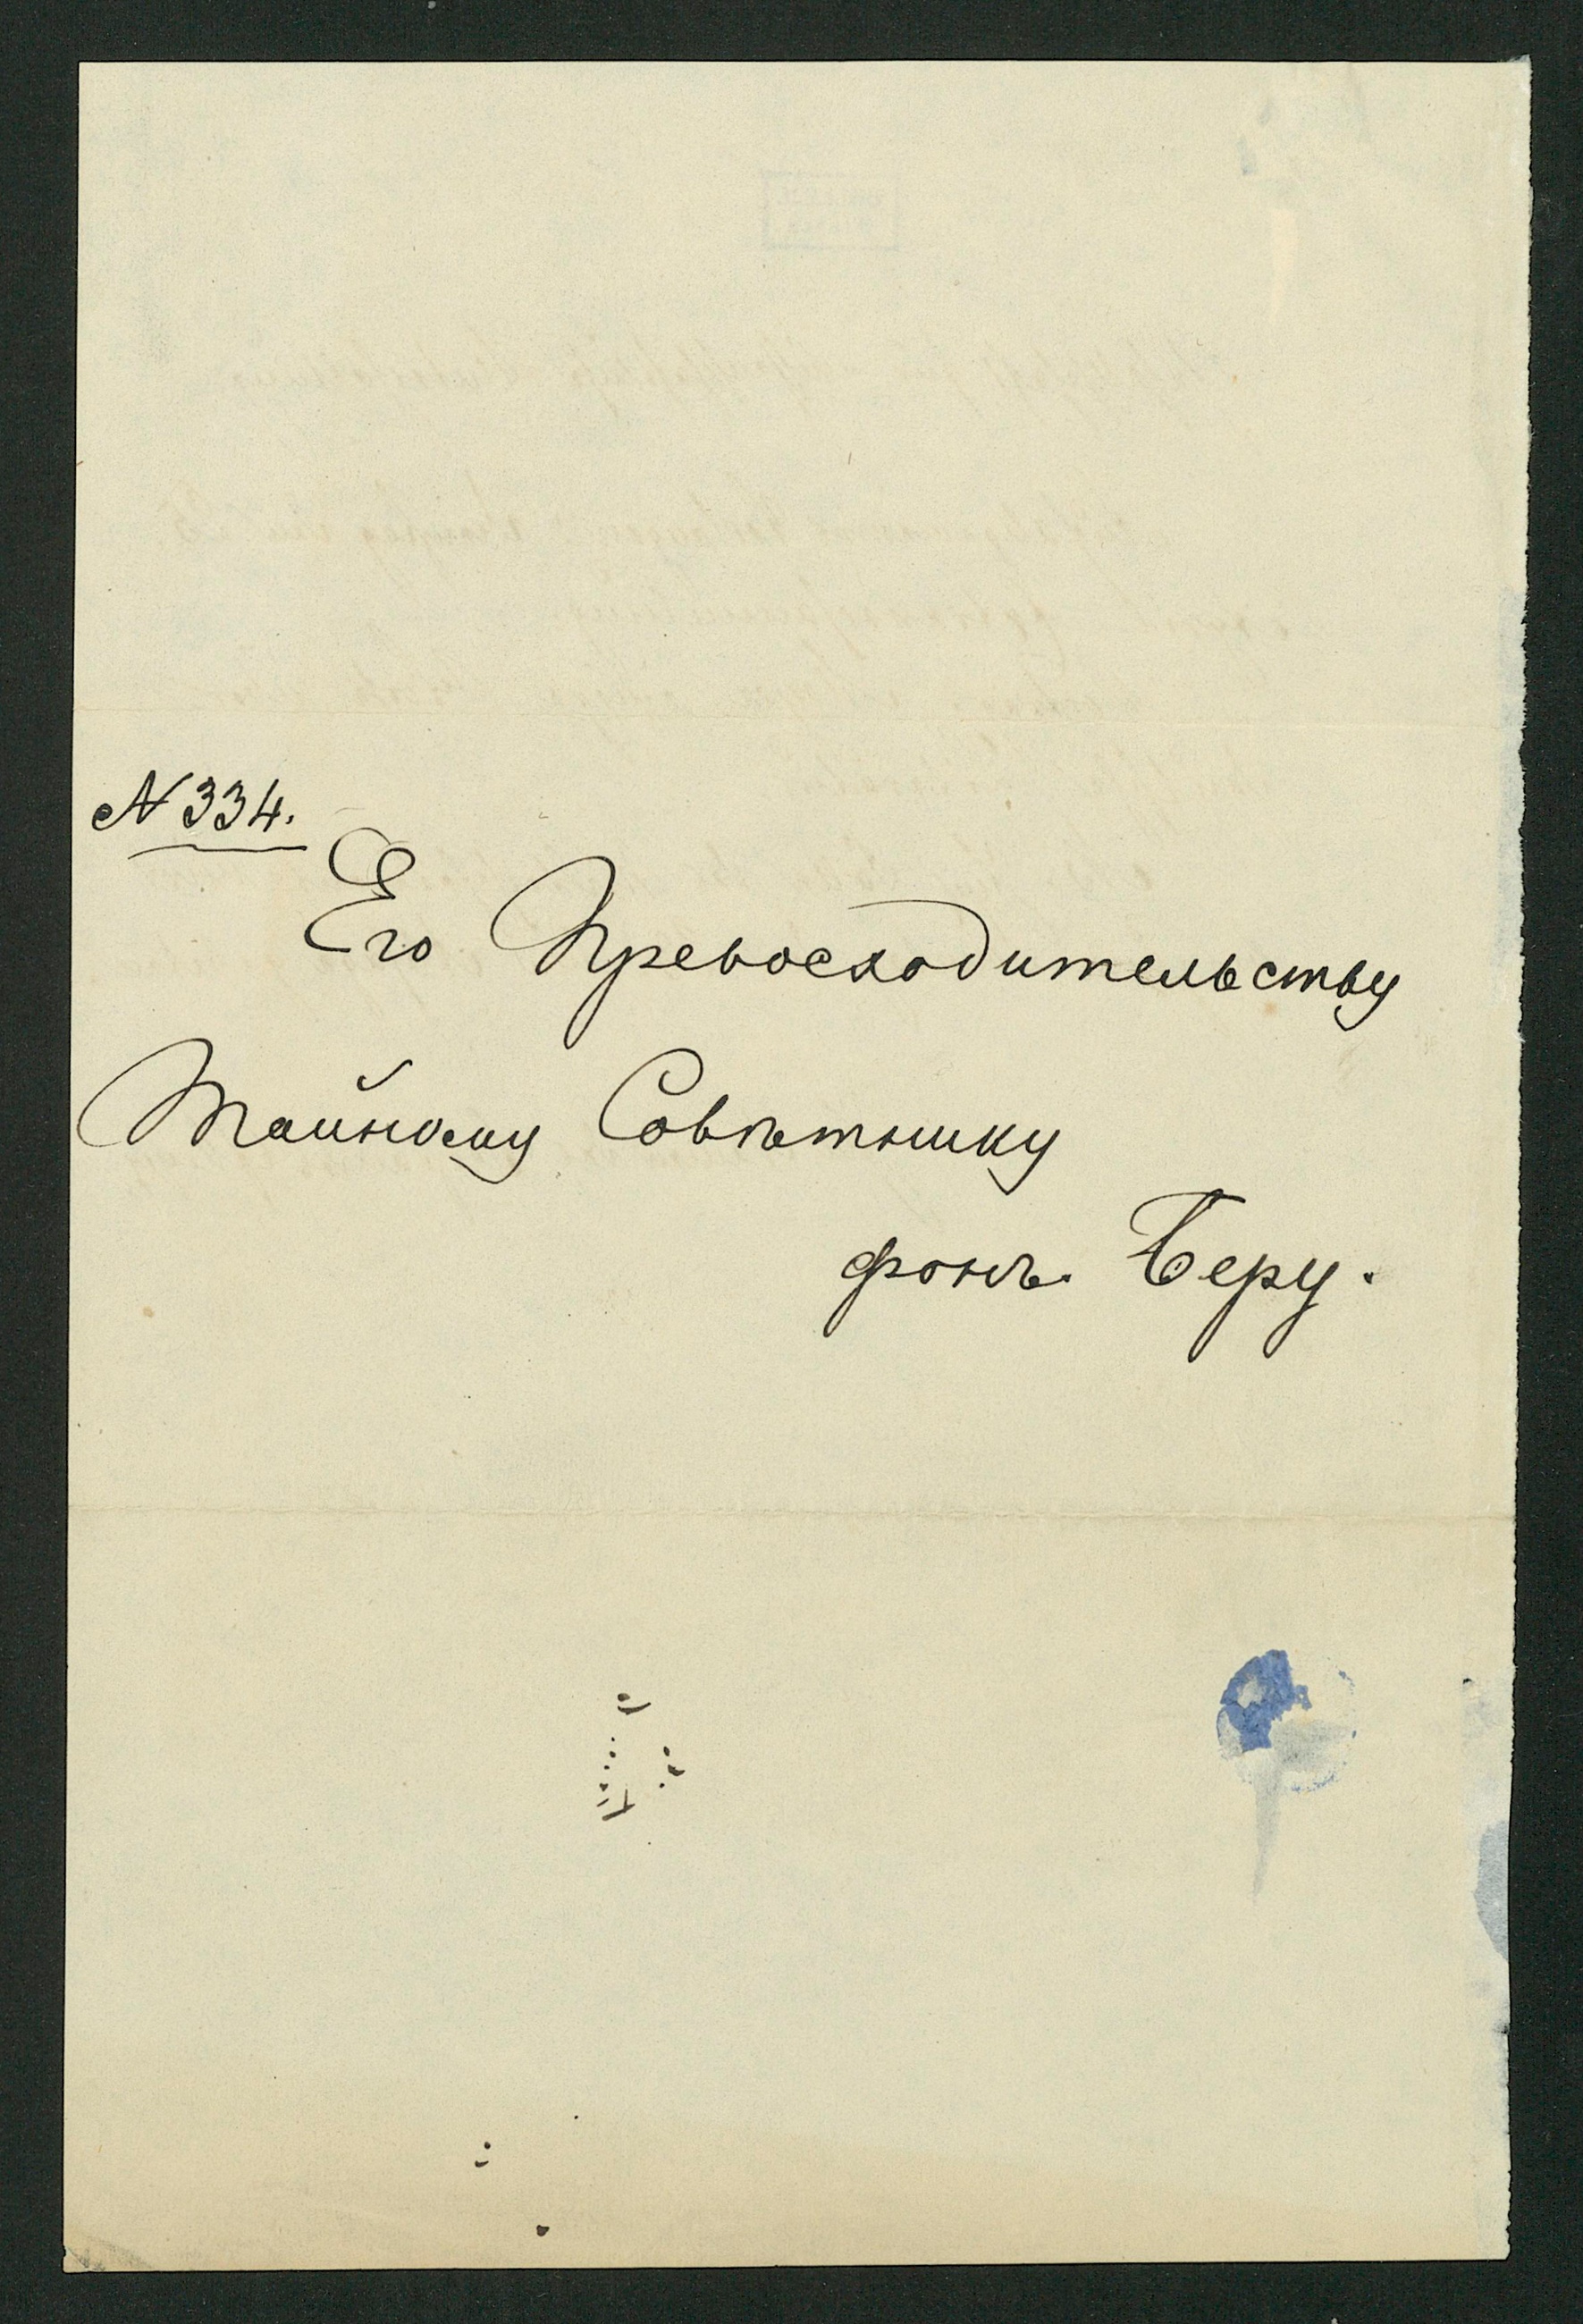 N 334.
Его Превосходительству
Тайному Совѣтнику
фонъ Беру.